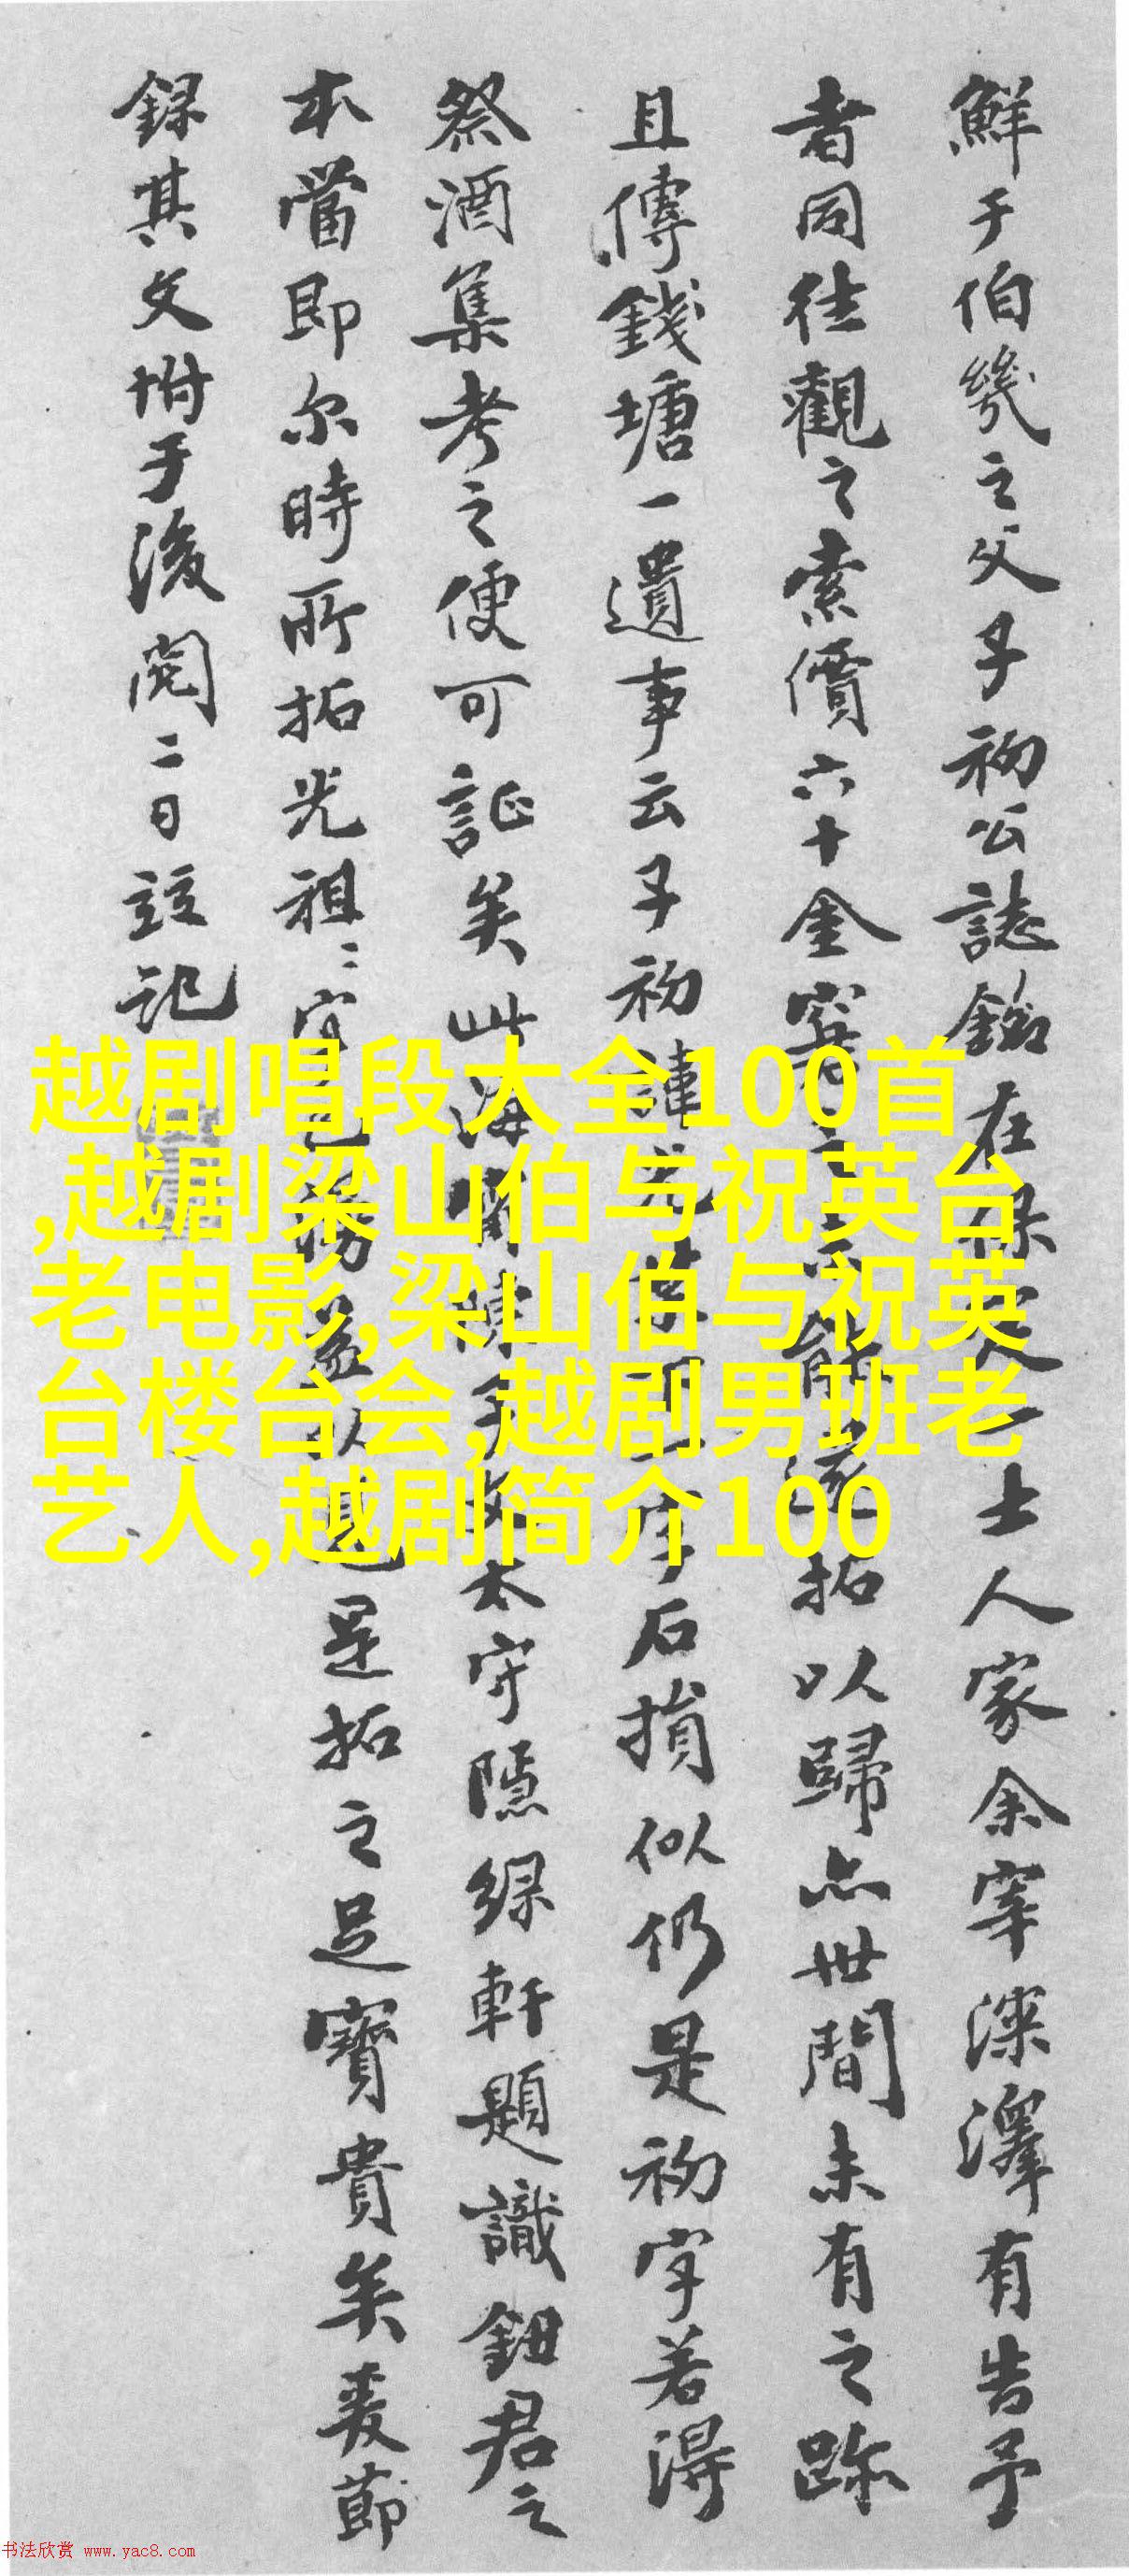 鮮于伯幾之父子初公誌銘在保定一士人家余宰深澤有告予
者同往觀之索價六十金窘之不能遂拓以歸亦世間未有之跡
且傳錢塘一遺事云子初諱光祖字石損似仍是初字若得
祭酒集考之便可証矣此海陵太守隱綠軒題識鈕君之
本當即尔時所拓光祖二字已以是拓之足寶貴矣爰節
録其文坿于後閏二日記
越剧唱段大全100首
,越剧梁山伯与祝英台
老电影,梁山伯与祝英
台楼台会,越剧男班老
艺人,越剧简介100
书法欣赏 www.yac8.com